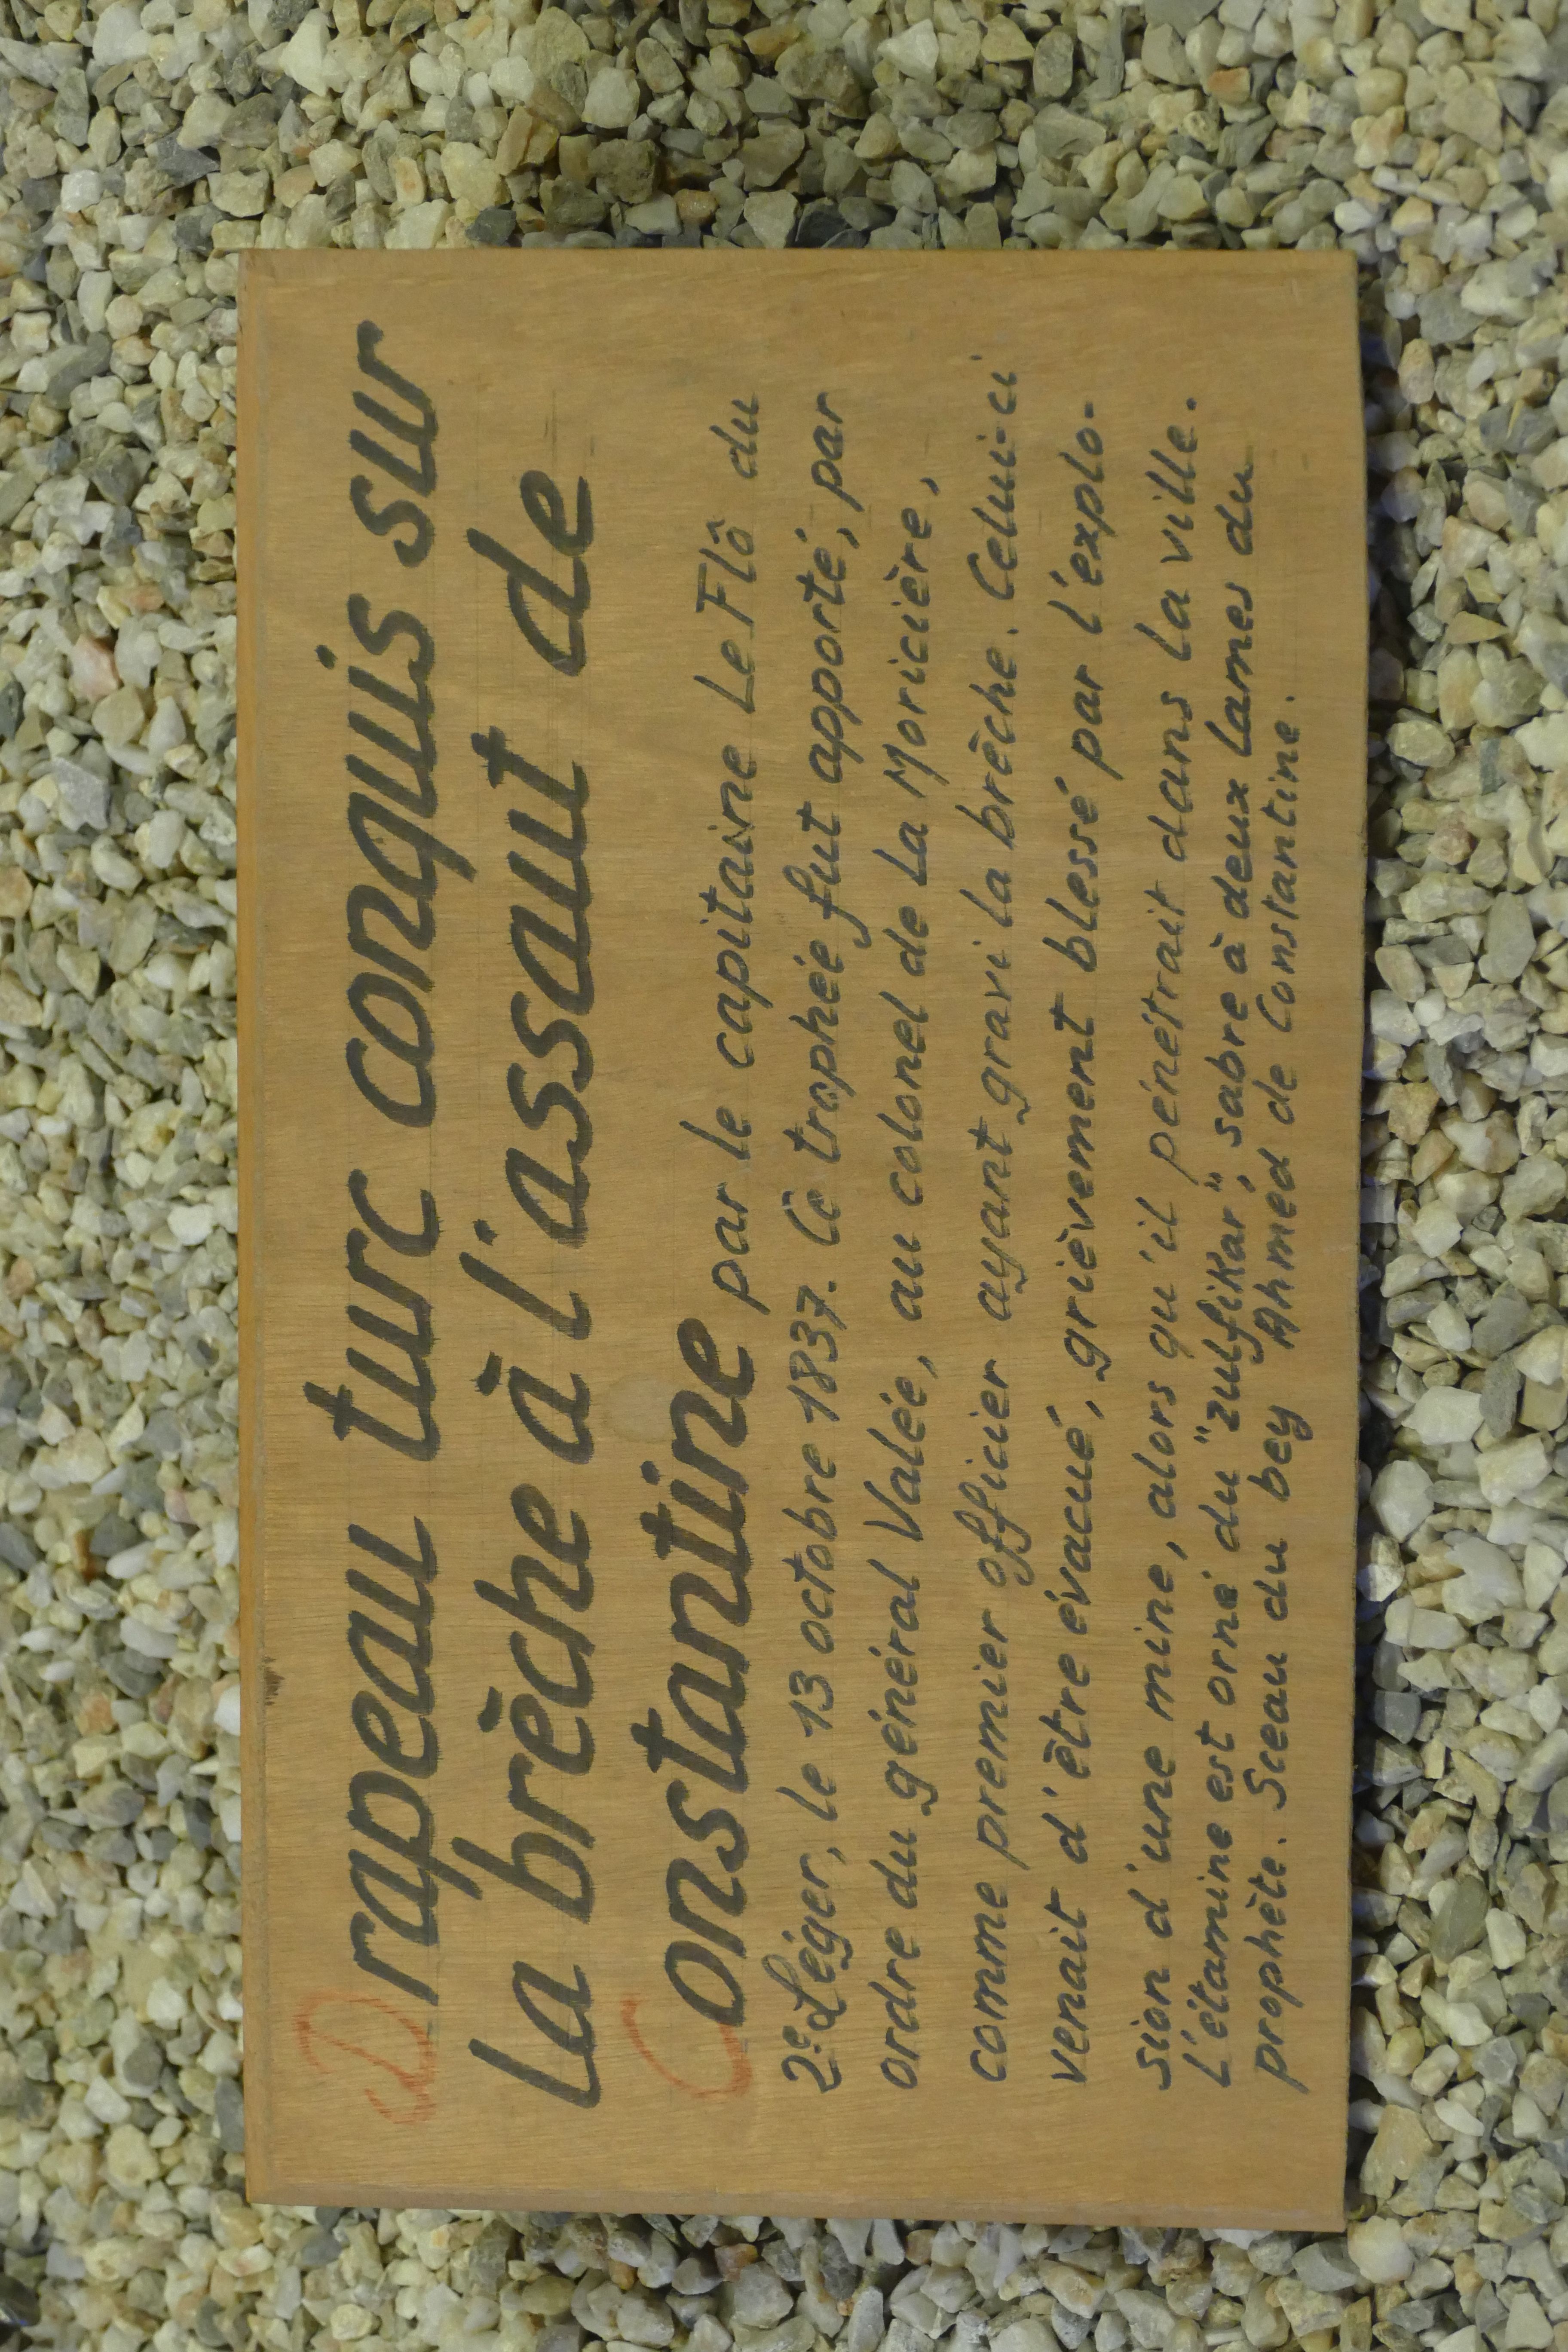 Drapeau turc conquis sur
la brèche à l'assaut de
Constantine par le capitaine Le Flô du
2e Léger, le 13 octobre 1837. Ce trophée fut apporté, par
ordre du général Valée, au colonel de La Moricière,
comme premier officier ayant gravi la brèche. Celui-ci
venait d'être évacué, grièvement blessé par l'explo-
sion d'une mine, alors qu'il pénétrait dans la ville.
L'étamine est orné du "zulfikar", sabre à deux lames du
prophète. Sceau du bey Ahmed de Constantine.